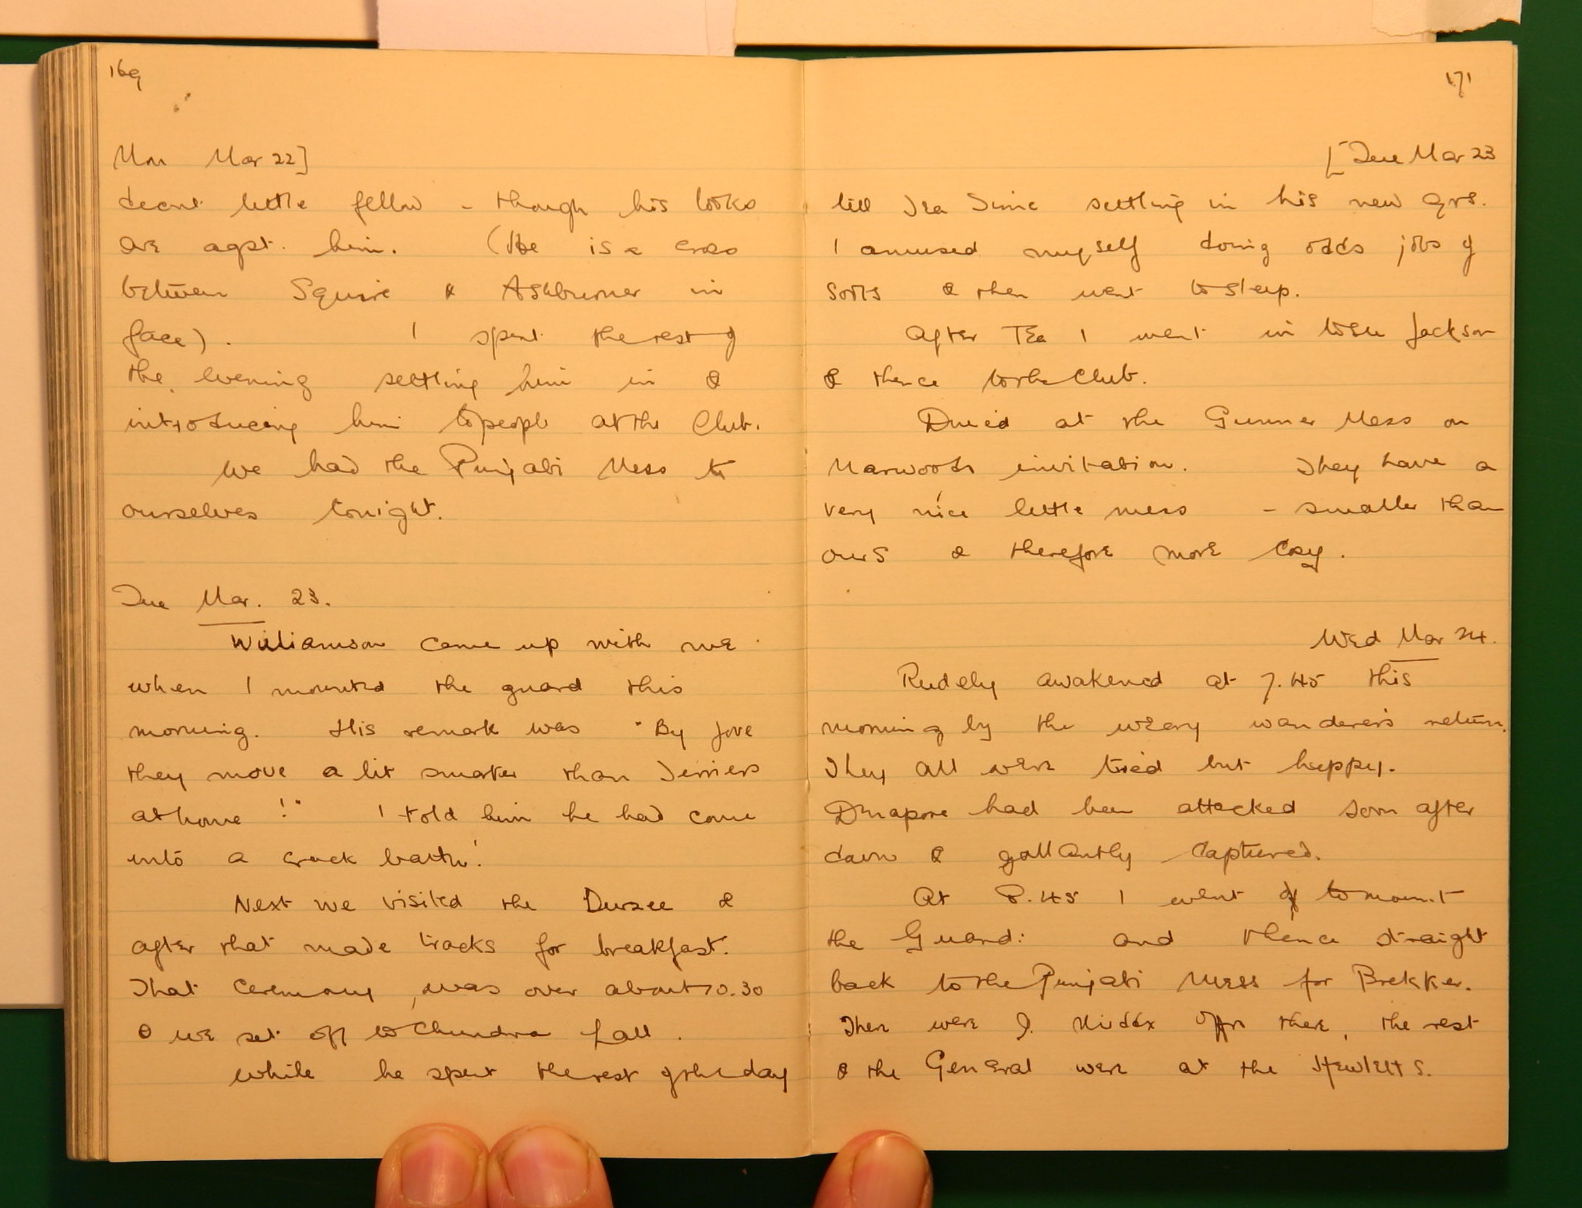 169
Mon Mar 22]
decent little fellow - though his looks
are agst. him. (He is a cross
between Squire & Ashburner in
face). I spent the rest of
the evening settling him in &
introducing him to people at the Club.
We had the Punjabi Mess to
ourselves tonight.
Tue Mar. 23.
Williamson came up with me
when I mounted the guard this
morning. His remark was "By Jove
they move a bit smarter than Terriers
at home!" I told him he had come
into a crack battn!
Next we visited the Durzee &
after that made tracks for breakfast.
That ceremony was over about 10.30
& we set off to Chundra fall.
While he spent the rest of the day
171
[Tue Mar 23
till Tea Time settling in his new qrs.
I amused myself doing odds jobs of
sorts & then went to sleep.
After Tea I went in to see Jackson
& thence to the Club.
Dined at the Gunner Mess on
Marwoods invitation. They have a
very nice little mess - smaller than
ours & therefore more cosy.
Wed Mar 24.
Rudely awakened at 7.45 this
morning by the weary wanderers return.
They all were tired but happy.
Dinapore had been attacked soon after
dawn & gallantly captured.
At 8.45 I went off to mount
the Guard: and thence straight
back to the Punjabi Mess for Brekker.
There were 9. Middx Offrs there, the rest
& the General were at the Hewletts.